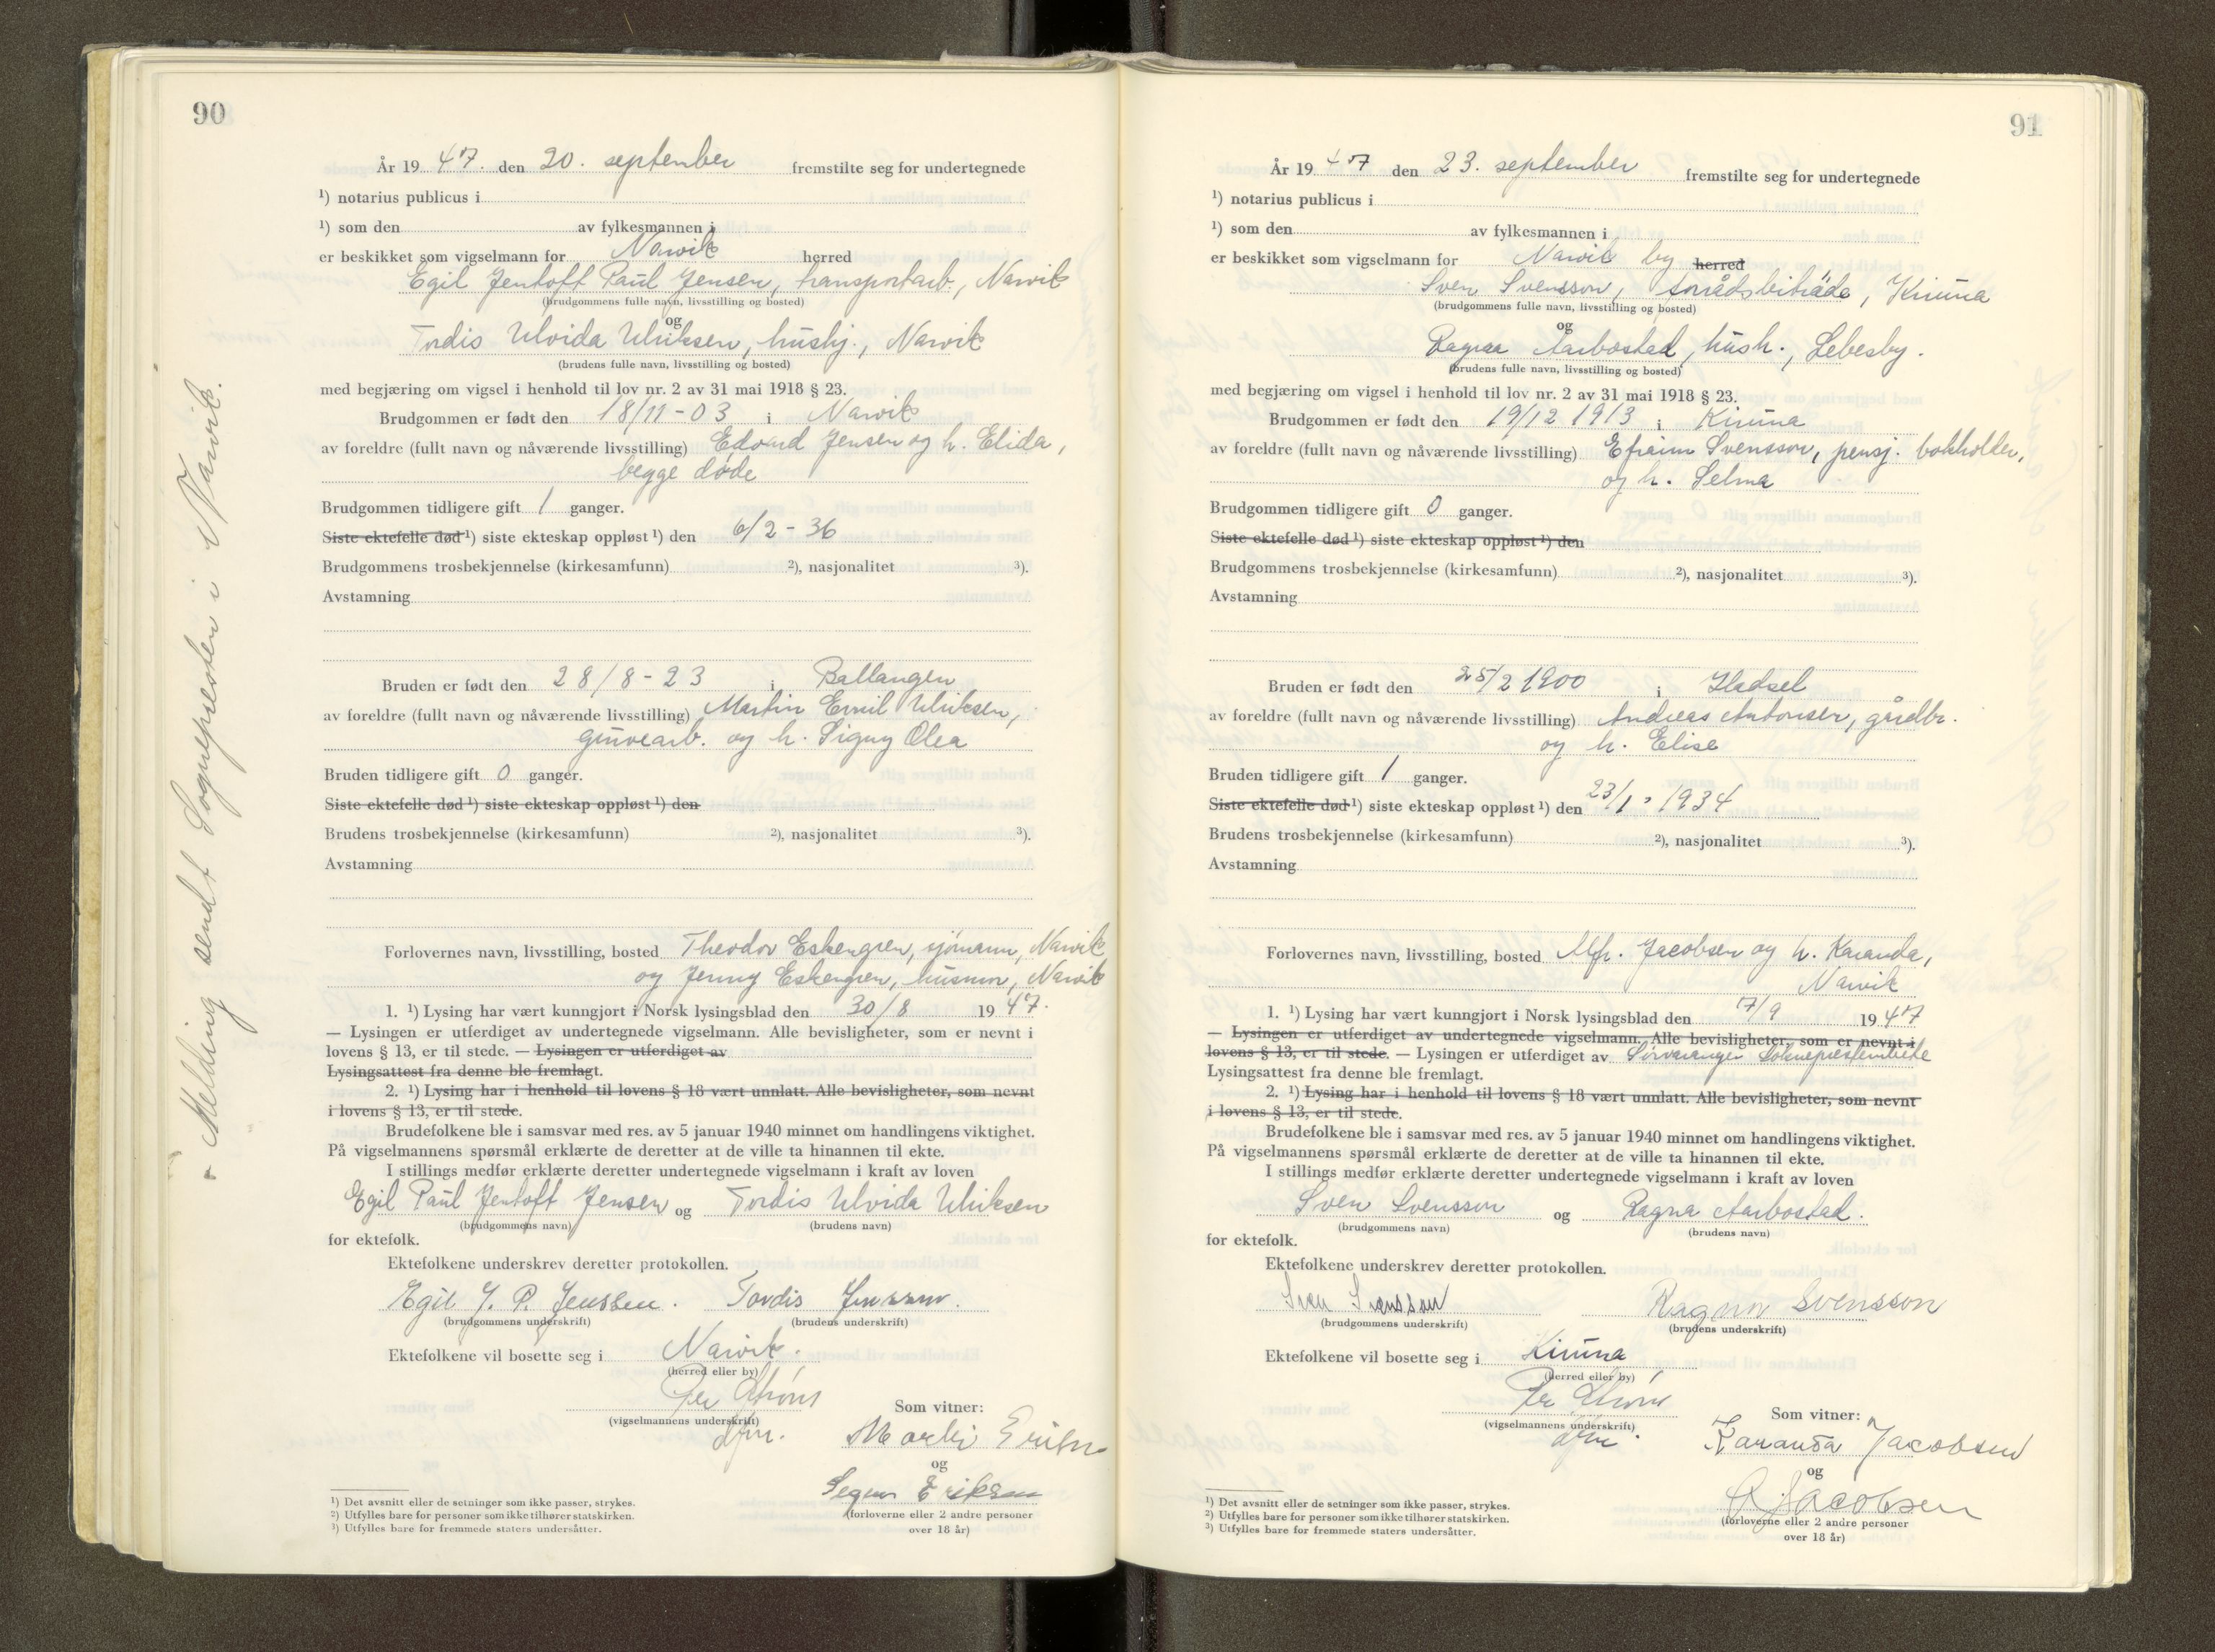 90
År 19 47. den 20. september fremstilte seg for undertegnede
¹) notarius publicus i
¹) som den av fylkesmannen i
er beskikket som vigselmann for Narvik herred
Egil Jentoft Paul Jensen, transportarb., Narvik
(brudgommens fulle navn, livsstilling og bosted)
og
Tordis Ulvida Ulriksen, hushj., Narvik
(brudens fulle navn, livsstilling og bosted)
med begjæring om vigsel i henhold til lov nr. 2 av 31 mai 1918 § 23.
Brudgommen er født den 18/11-03 i Narvik
av foreldre (fullt navn og nåværende livsstilling) Edvard Jensen og h. Elida,
begge døde
Brudgommen tidligere gift 1 ganger.
Siste ektefelle død ¹) siste ekteskap oppløst ¹) den 6/2-36
Brudgommens trosbekjennelse (kirkesamfunn) ²), nasjonalitet ³).
Avstamning
Bruden er født den 28/8-23 i Ballangen
av foreldre (fullt navn og nåværende livsstilling) Martin Emil Ulriksen,
gruvearb. og h. Signy Olea
Bruden tidligere gift 0 ganger.
Siste ektefelle død ¹) siste ekteskap oppløst ¹) den
Brudens trosbekjennelse (kirkesamfunn) ²), nasjonalitet ³).
Avstamning
Forlovernes navn, livsstilling, bosted Theodor Eskengren, sjømann, Narvik
og Jenny Eskengren, husmor, Narvik
1. ¹) Lysing har vært kunngjort i Norsk lysingsblad den 30/8 19 47.
— Lysingen er utferdiget av undertegnede vigselmann. Alle bevisligheter, som er nevnt i
lovens § 13, er til stede. — Lysingen er utferdiget av
Lysingsattest fra denne ble fremlagt.
2. ¹) Lysing har i henhold til lovens § 18 vært unnlatt. Alle bevisligheter, som nevnt
i lovens § 13, er til stede.
Brudefolkene ble i samsvar med res. av 5 januar 1940 minnet om handlingens viktighet.
På vigselmannens spørsmål erklærte de deretter at de ville ta hinannen til ekte.
I stillings medfør erklærte deretter undertegnede vigselmann i kraft av loven
Egil Paul Jentoft Jensen og Tordis Ulvida Ulriksen
(brudgommens navn) (brudens navn)
for ektefolk.
Ektefolkene underskrev deretter protokollen.
Egil J. P. Jenssen. Tordis Jenssen.
(brudgommens underskrift) (brudens underskrift)
Ektefolkene vil bosette seg i Narvik.
(herred eller by)
Per
(vigselmannens underskrift)
Som vitner:
og
Eriksen
(forloverne eller 2 andre personer
over 18 år)
¹) Det avsnitt eller de setninger som ikke passer, strykes.
²) Utfylles bare for personer som ikke tilhører statskirken.
³) Utfylles bare for fremmede staters undersåtter.
Melding sendt Sogneprestem i Narvik.
91
År 19 47 den 23. september fremstilte seg for undertegnede
¹) notarius publicus i
¹) som den av fylkesmannen i
er beskikket som vigselmann for Narvik by herred
Sven Svensson, förrådsbiträde, Kiruna
(brudgommens fulle navn, livsstilling og bosted)
og
Ragna Aarbostad, hush., Lebesby.
(brudens fulle navn, livsstilling og bosted)
med begjæring om vigsel i henhold til lov nr. 2 av 31 mai 1918 § 23.
Brudgommen er født den 19/12 1913 i Kiruna
av foreldre (fullt navn og nåværende livsstilling) Efraim Svensson, pensj. bokholder,
og h. Selma
Brudgommen tidligere gift 0 ganger.
Siste ektefelle død ¹) siste ekteskap oppløst ¹) den
Brudgommens trosbekjennelse (kirkesamfunn) ²), nasjonalitet ³).
Avstamning
Bruden er født den 25/2 1900 i Hadsel
av foreldre (fullt navn og nåværende livsstilling) Andreas Antonsen, gårdbr.
og h. Elise
Bruden tidligere gift 1 ganger.
Siste ektefelle død ¹) siste ekteskap oppløst ¹) den 23/1 1934
Brudens trosbekjennelse (kirkesamfunn) ²), nasjonalitet ³).
Avstamning
Forlovernes navn, livsstilling, bosted Alfr. Jacobsen og h. Karanda,
Narvik
1. ¹) Lysing har vært kunngjort i Norsk lysingsblad den 17/9 19 47
— Lysingen er utferdiget av undertegnede vigselmann. Alle bevisligheter, som er nevnt i
lovens § 13, er til stede. — Lysingen er utferdiget av Sørvaranger Soknepresteembete
Lysingsattest fra denne ble fremlagt.
2. ¹) Lysing har i henhold til lovens § 18 vært unnlatt. Alle bevisligheter, som nevnt
i lovens § 13, er til stede.
Brudefolkene ble i samsvar med res. av 5 januar 1940 minnet om handlingens viktighet.
På vigselmannens spørsmål erklærte de deretter at de ville ta hinannen til ekte.
I stillings medfør erklærte deretter undertegnede vigselmann i kraft av loven
Sven Svensson og Ragna Aarbostad.
(brudgommens navn) (brudens navn)
for ektefolk.
Ektefolkene underskrev deretter protokollen.
Sven Svensson Ragna Svensson
(brudgommens underskrift) (brudens underskrift)
Ektefolkene vil bosette seg i Kiruna
(herred eller by)
Per
(vigselmannens underskrift)
Som vitner:
Karanda Jacobsen
og
A Jacobsen
(forloverne eller 2 andre personer
over 18 år)
¹) Det avsnitt eller de setninger som ikke passer, strykes.
²) Utfylles bare for personer som ikke tilhører statskirken.
³) Utfylles bare for fremmede staters undersåtter.